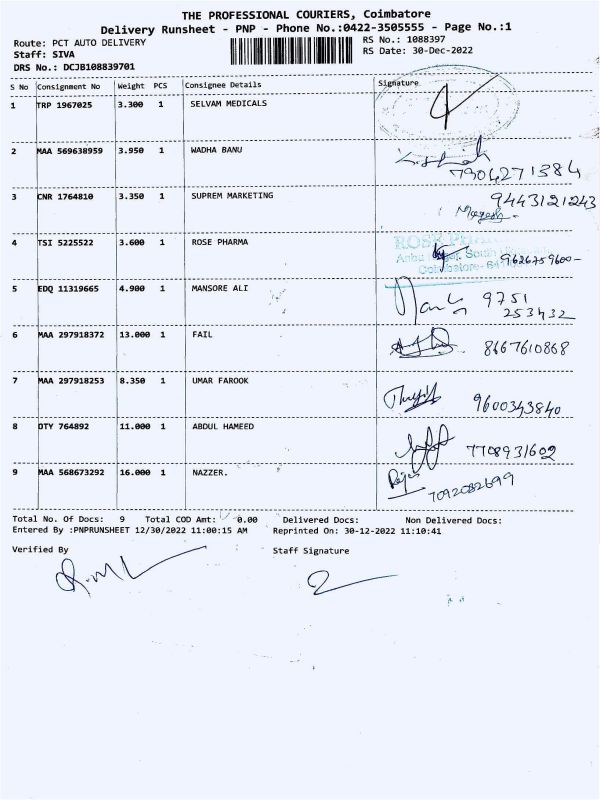 THE PROFESSIONAL COURIERS, Coimbatore
Delivery Runsheet - PNP - Phone No.:0422-3505555 - Page No.:1
Route: PCT AUTO DELIVERY RS No.: 1088397
Staff: SIVA RS Date: 30-Dec-2022
DRS No.: DCJB108839701
S No Consignment No Weight PCS Consignee Details Signature
1 TRP 1967025 3.300 1 SELVAM MEDICALS
2 MAA 569638959 3.950 1 WADHA BANU
7904271384
3 CNR 1764810 3.350 1 SUPREM MARKETING 9443121243
Magesh.
4 TSI 5225522 3.600 1 ROSE PHARMA ROSE
9626759600-
Coimbatore-
5 EDQ 11319665 4.900 1 MANSORE ALI 9751
253432
6 MAA 297918372 13.000 1 FAIL 8667610868
7 MAA 297918253 8.350 1 UMAR FAROOK
9600343840
8 OTY 764892 11.000 1 ABDUL HAMEED
7708931602
9 MAA 568673292 16.000 1 NAZZER.
7092082699
Total No. Of Docs: 9 Total COD Amt: 0.00 Delivered Docs: Non Delivered Docs:
Entered By :PNPRUNSHEET 12/30/2022 11:00:15 AM Reprinted On: 30-12-2022 11:10:41
Verified By Staff Signature